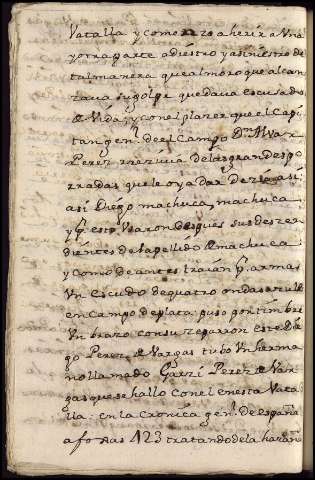 Vatalla y comenzo a herir a Una
y otra parte adiestro y asiniestro de
tal manera que al moro que alcan
zava su golpe quedava escusado
de Vida; y con el plazer que el Capi
tan gen.l de el Campo D.n Alvar
Perez rrezevia de las grandes po
rradas que le oya dar Dezia así
así Diego machuca, machuca
y p.r esto Usaron despues sus deszen
dientes de la pellido de machuca
y como de antes traian p.r armas
Un escudo de quatro ondas azules
en Campo de plata: puso por timbre
Un brazo con su zeparron este Die
go Perez de Vargas tubo Un herma
no llamado Garzi Perez de Var
gas que se hallo con el en esta Vata
lla: en la Cronica gen.l de españa
a foxas 423 tratando de la hazañ